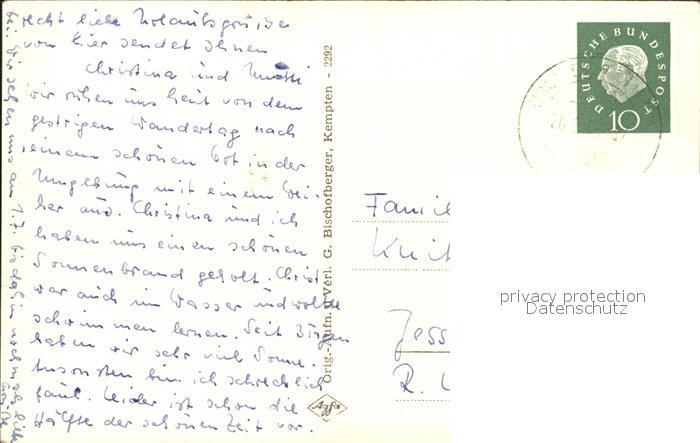 recht liebe Urlaubsgrüße
von hier sendet Ihnen
Christina und Mutti
Wir ruhen uns heut von dem
gestrigen Wandertag nach
einem schönen Ort in der
Umgebung mit einem Wei-
her aus. Christina und ich
haben uns einen schönen
Sonnenbrand geholt. Christ.
war auch im Wasser und wollte
schwimmen lernen. Seit 3 Tagen
haben wir sehr viel Sonne.
Ansonsten bin ich schrecklich
faul. Leider ist schon die
Hälfte der schönen Zeit vor-
bei. Wir sehen uns am 1.7. bis dahin nochmals liebe
Grüße
Orig.-Aufn. u. Verl. G. Bischofberger, Kempten - 2292
DEUTSCHE BUNDESPOST
10
Famil
Knit
Jess
R.
privacy protection
Datenschutz